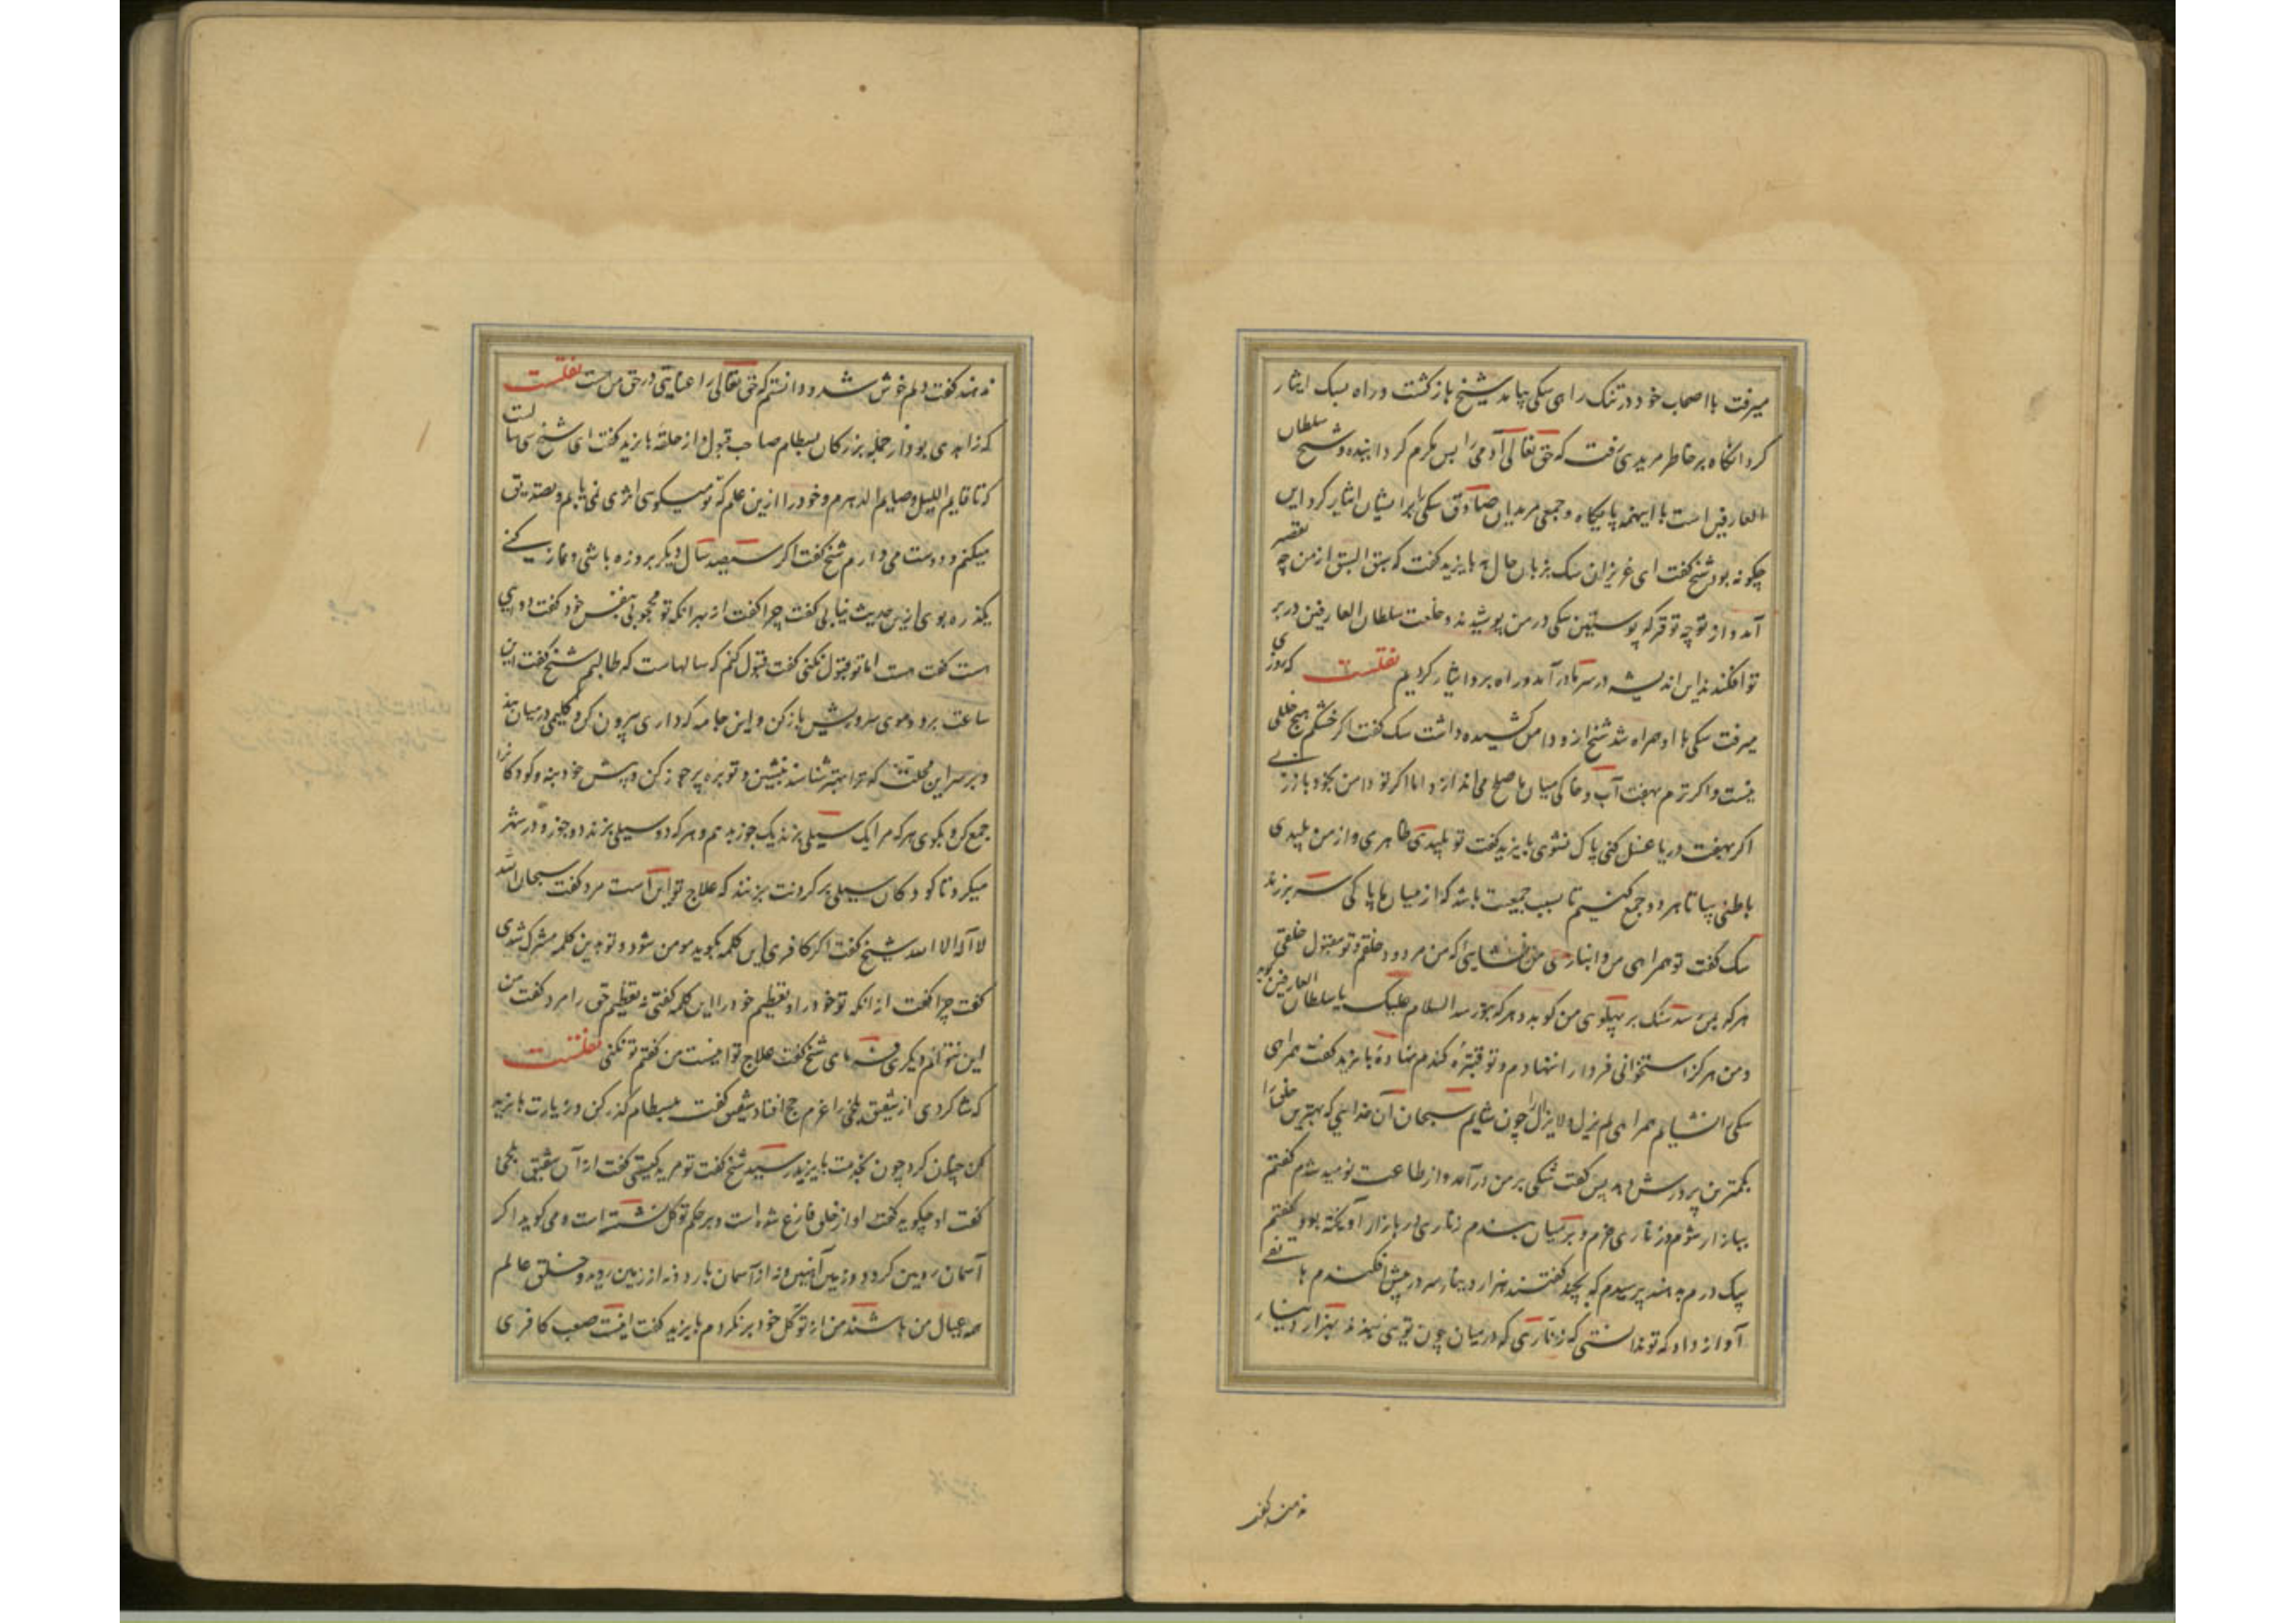 میرفت با اصحاب خود در تنک راهی سکی پیامد شیخ بازکشت و راه بسک ایثار
کرد انکاه بر خاطر مریدی برفت که حق تعالی آدمی را بس مکرم کردانیده و شیخ سلطان
العارفین است با اینهمه پایکاه و جمعی مریدان صادق سکی را بر ایشان ایثار کرد این
چکونه بود شیخ کفت ای عزیزان سک بزبان حال به بایزید کفت که سبق السبق از من چه تقصیر
آمد و از تو چه توقر که پوستین سکی در من پوشیدند و خلعت سلطان العارفین در بر
تو افکندند این اندیشه در سر ما در آمد و راه برو ایثار کردیم نقلست که روزی
میرفت سکی با او همراه شد شیخ ازو دامن کشیده داشت سک کفت اکر خشکم هیچ خللی
نیست و اکر ترم بهفت آب و خاکی میان ما صلح می اندازد اما اکر تو دامن بخود باز زنی
اکر بهفت دریا غسل کنی پاک نشوی بایزید کفت تو پلیدی ظاهری و از من پلیدی
باطنی بیا تا هر دو جمع کنیم تا بسبب جمعیت باشد که از میان ما پاکی سر بر زند
سک کفت تو همراهی من و انبازی من نشایی که من مردود خلقم و تو مقبول خلقی
هر که بمن رسد سنک بر پهلوی من کوبد و هر که بتو رسد السلام علیک یا سلطان العارفین کوید
و من هرکز استخوانی فردا را ننهادم و تو کندم نهاده بایزید کفت همراهی
سکی را نشایم همراهی لم یزل و لا یزال را چون شایم سبحان آن خدایی که بهترین خلق را
بکمترین پرورش دهد پس کفت تنکی بر من در آمد و از طاعت نومید شدم کفتم
ببازار شوم و زناری خرم و بر میان بندم زناری در بازار آویخته بود کفتم
بیک درم بدهند پرسیدم که بچند کفتند بهزار دینار سر در پیش افکندم هاتفی
آواز داد که تو ندانستی که زناری که در میان چون تویی بندند بهزار دینار
ندهند کفت دلم خوش شد و دانستم که حق تعالی را عنایتی در حق من هست نقلست
که زاهدی بود از جمله بزرکان بسطام صاحب قبول و از حلقه بایزید کفت ای شیخ سی سالست
که تا قایم اللیل و صایم الدهرم و خود را ازین علم که تو میکویی اثری نمی یابم و تصدیق
میکنم و دوست می دارم شیخ کفت اکر سیصد سال دیکر بروزه باشی و نماز کنی
یکذره بوی ازین حدیث نیابی کفت چرا کفت از بهر انکه تو محجوبی بنفس خود کفت دوایی
هست کفت هست اما تو قبول نکنی کفت قبول کنم که سالهاست که طالبم شیخ کفت این
ساعت برو و موی سر و ریش باز کن و این جامه که داری بیرون کن و کلیمی در میان بند
و بر سر این محلت که ترا بهتر شناسند بنشین و توبره پر جوز کن و پیش خود بنه و کودکان را
جمع کن و بکوی هر که مرا یک سیلی بزند یک جوز بدهم و هر که دو سیلی بزند دو جوز و در شهر
میکرد تا کودکان سیلی بر کردنت بزنند که علاج تو این است مرد کفت سبحان الله
لا اله الا الله شیخ کفت اکر کافری این کلمه بکوید مومن شود و تو بدین کلمه مشرک شدی
کفت چرا کفت از انکه تو خود را و تعظیم خود را این کلمه کفتی نه تعظیم حق را مرد کفت من
این نتوانم دیکری فرمای شیخ کفت علاج تو اینست من کفتم تو نکنی نقلست
که شاکردی از شقیق بلخی را عزم حج افتاد شقیق کفت ببسطام کذر کن و زیارت بایزید
کن چنان کرد چون بخدمت بایزید رسید شیخ کفت تو مرید کیستی کفت از آن شقیق بلخی
کفت او چکوید کفت او از خلق فارغ شده است و بر حکم توکل نشسته است و می کوید اکر
آسمان رویین کردد و زمین آهنین و نه از آسمان بارد و نه از زمین روید و خلق عالم
همه عیال من باشند من از توکل خود برنکردم بایزید کفت اینت صعب کافری